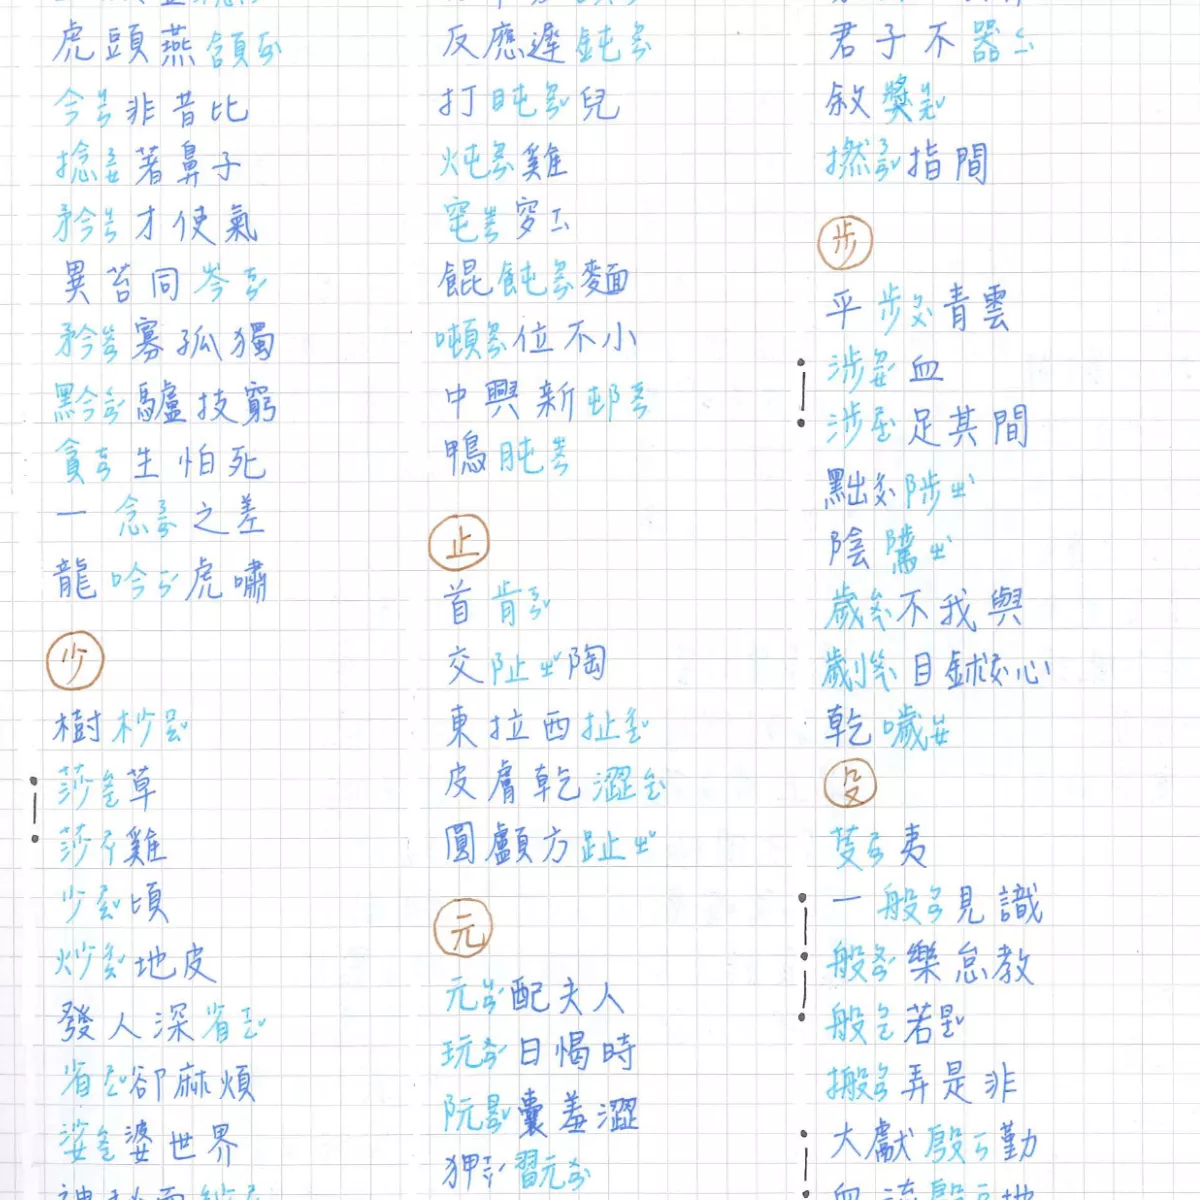 虎頭燕頷
今非昔比
捻著鼻子
矜才使氣
異苔同岑
矜寡孤獨
黔驢技窮
貪生怕死
一念之差
龍吟虎嘯
少
樹杪
莎草
莎雞
少頃
炒地皮
發人深省
省卻麻煩
娑婆世界
反應遲鈍
打盹兒
炖雞
窀穸
餛飩麵
噸位不小
中興新邨
鴨肫
止
首肯
交阯陶
東拉西扯
皮膚乾澀
圓顱方趾
元
元配夫人
玩日愒時
阮囊羞澀
狎翫
君子不器
敘獎
撚指間
步
平步青雲
涉血
涉足其間
黜陟
陰騭
歲不我與
劌目鉥心
乾噦
殳
芟夷
一般見識
般樂怠教
般若
搬弄是非
大獻殷勤